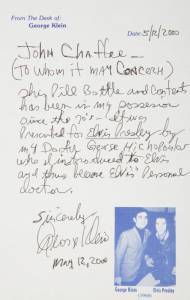 From The Desk of:
George Klein
Date: 5/12/2000
John Chaffee —
(To whom it may concern)
this Pill Bottle and contents
has been in my possession
since the 70's - It was
Presented for Elvis Presley by
my Doctor George Nichopoulos
who I introduced to Elvis
and thus became Elvis' Personal
doctor.
Sincerely
George Klein
May 12, 2000
George Klein Elvis Presley